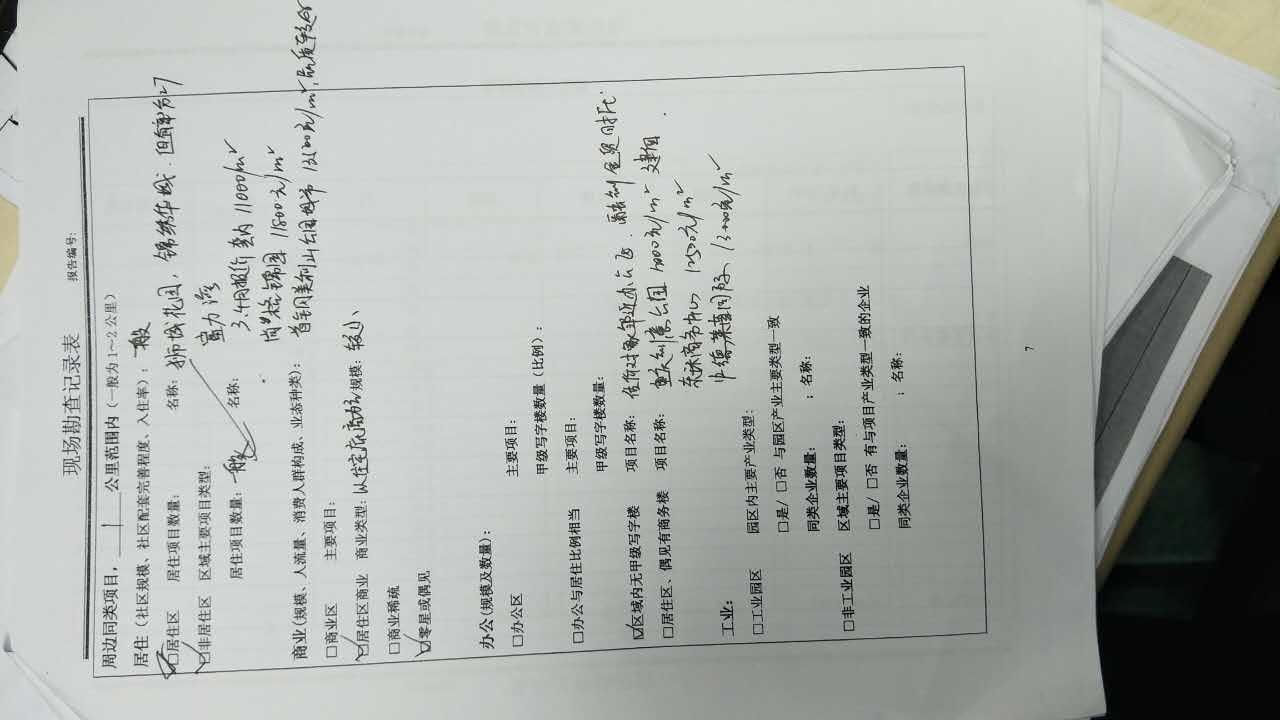 现场勘查记录表
报告编号:
周边同类项目, 1 公里范围内（一般为1~2公里）
居住（社区规模、社区配套完善程度、入住率）: 一般
□居住区 居住项目数量: 名称: 狮城花园, 锦绣华城.
☑非居住区 区域主要项目类型: 富力湾
居住项目数量: 一般 名称: 3.4月报价 套内11000/m²
锦园 11800元/m²
商业(规模、人流量、消费人群构成、业态种类): 首钢美利山 公园城市
□商业区 主要项目:
☑居住区商业 商业类型: 以住宅底商为主 规模: 较小
□商业稀疏
☑零星或偶见
办公(规模及数量):
□办公区 主要项目:
甲级写字楼数量（比例）:
□办公与居住比例相当 主要项目:
甲级写字楼数量:
☑区域内无甲级写字楼 项目名称:
□居住区、偶见有商务楼 项目名称:
12500元/m²
工业: 13000元/m²
□工业园区 园区内主要产业类型:
□是/ □否 与园区产业主要类型一致
同类企业数量: ; 名称:
□非工业园区 区域主要项目类型:
□是/ □否 有与项目产业类型一致的企业
同类企业数量: ; 名称:
7